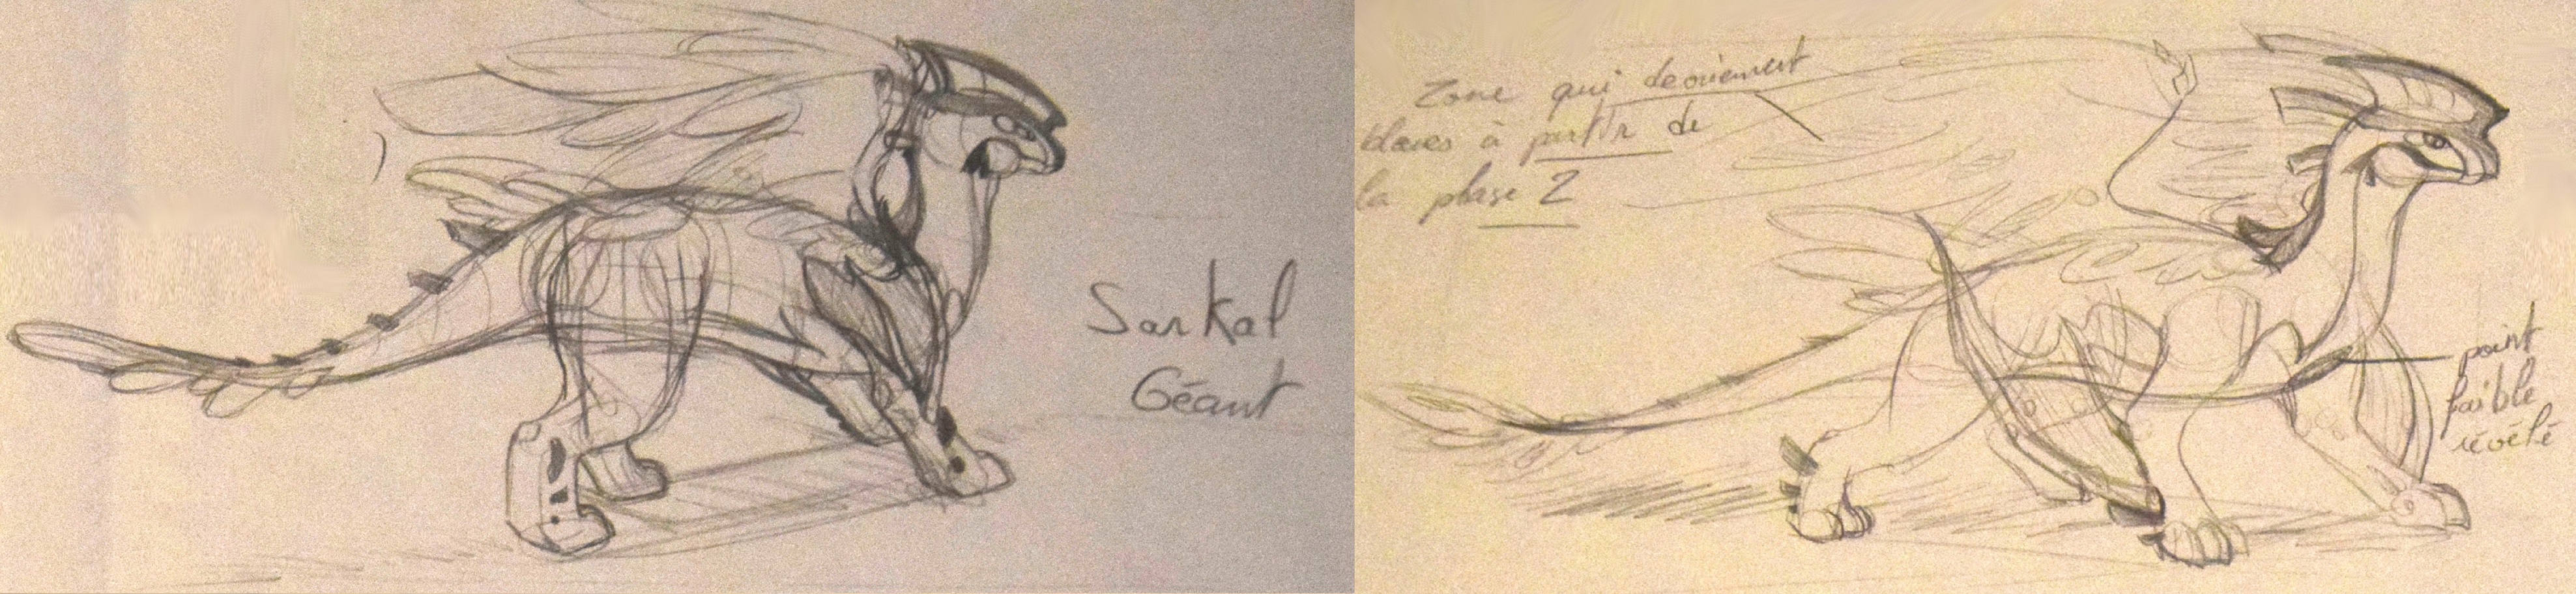 Sarkal
Géant
Zone qui deviennent
blaves à partir de
la phase 2
point
faible
révélé